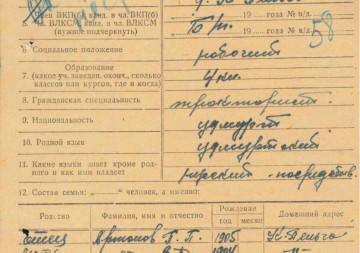 5. Член ВКП(б) канд. в чл. ВКП(б)
ВЛКСМ канд. в чл. ВЛКСМ
(нужное подчеркнуть)
19 года № п/д.
Б/п.
19 года № п/д.
58
6. Социальное положение
рабочий
Образование
7. (какое уч. заведен. оконч., сколько
классов или курсов, где и когда)
4 кл.
8. Гражданская специальность
тракторист.
9. Национальность
удмурт
10. Родной язык
удмуртский
11. Какие языки знает кроме род-
ного и как ими владеет
русский - посредств.
12. Состав семьи: „ “ человек, а именно:
Родство
Фамилия, имя и отчество
Рождение
год месяц
Домашний адрес
Отец
Артамов Г. П.
1905
1904